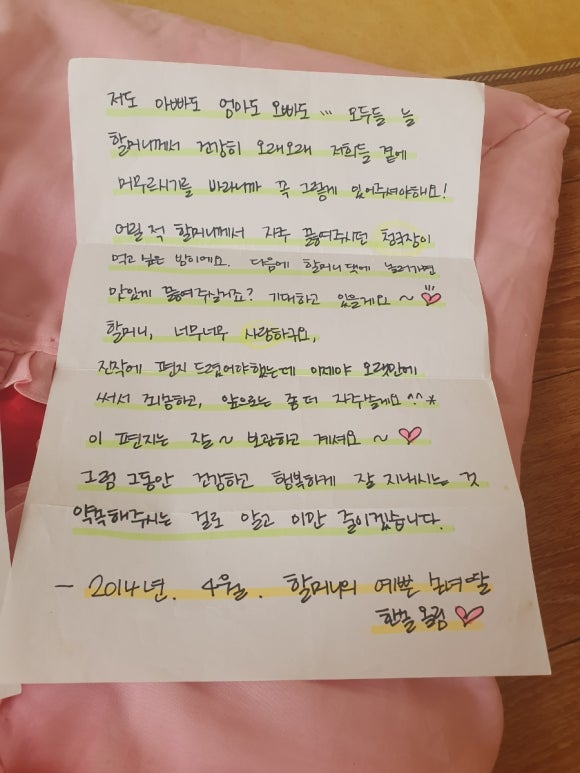 저도 아빠도 엄마도 오빠도 ... 모두들 늘
할머니께서 건강히 오래오래 저희들 곁에
머무르시기를 바라니까 꼭 그렇게 있어주셔야해요!
어릴 적 할머니께서 자주 끓여주시던 청국장이
먹고 싶은 밤이에요. 다음에 할머니댁에 놀러가면
맛있게 끓여주실거죠? 기대하고 있을게요 ~ ♡
할머니, 너무너무 사랑하구요,
진작에 편지 드렸어야했는데 이제야 오랫만에
써서 죄송하고, 앞으로는 좀 더 자주쓸게요 ^^*
이 편지는 잘 ~ 보관하고 계셔요 ~ ♡
그럼 그동안 건강하고 행복하게 잘 지내시는 것
약속해주시는 걸로 알고 이만 줄이겠습니다.
- 2014년. 4월. 할머니의 예쁜 손녀딸
올림 ♡